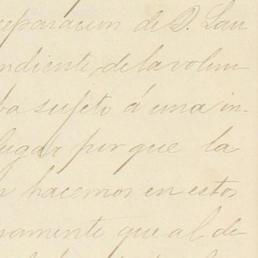 eparacion de D. Lau
ndiente, de la volun
ba sujeto á una in-
lugar por que la
hacemos en estos
namente que al de